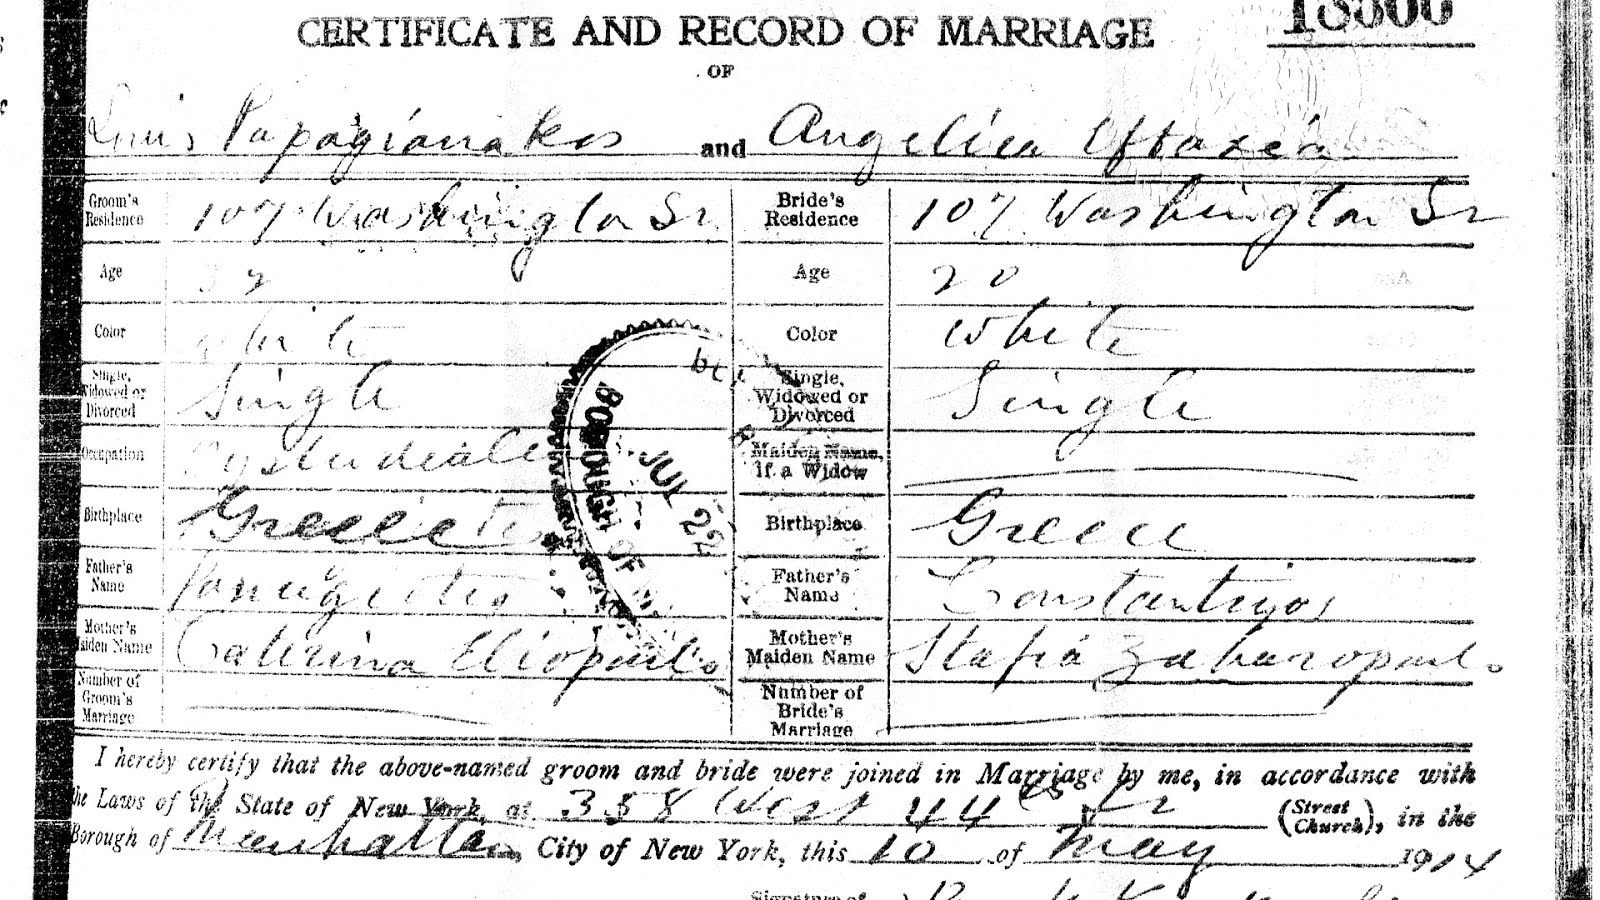 CERTIFICATE AND RECORD OF MARRIAGE
OF
Louis Papagianakos and Angelica Eftaxia
Groom's Residence 107 Washington St Bride's Residence 107 Washington St
Age 32 Age 20
Color white Color White
Single, Widowed or Divorced Single Single, Widowed or Divorced Single
Occupation Maiden Name, if a Widow
Birthplace Greece Birthplace Greece
Father's Name Panagiotis Father's Name Constantinos
Mother's Maiden Name Caterina Eliopoulo Mother's Maiden Name Stafia Zaharopoulo
Number of Groom's Marriage Number of Bride's Marriage
BOROUGH OF
JUL 22
I hereby certify that the above-named groom and bride were joined in Marriage by me, in accordance with
the Laws of the State of New York, at 358 West 44 St (Street Church), in the
Borough of Manhattan City of New York, this 10 of May 1914
Signature of